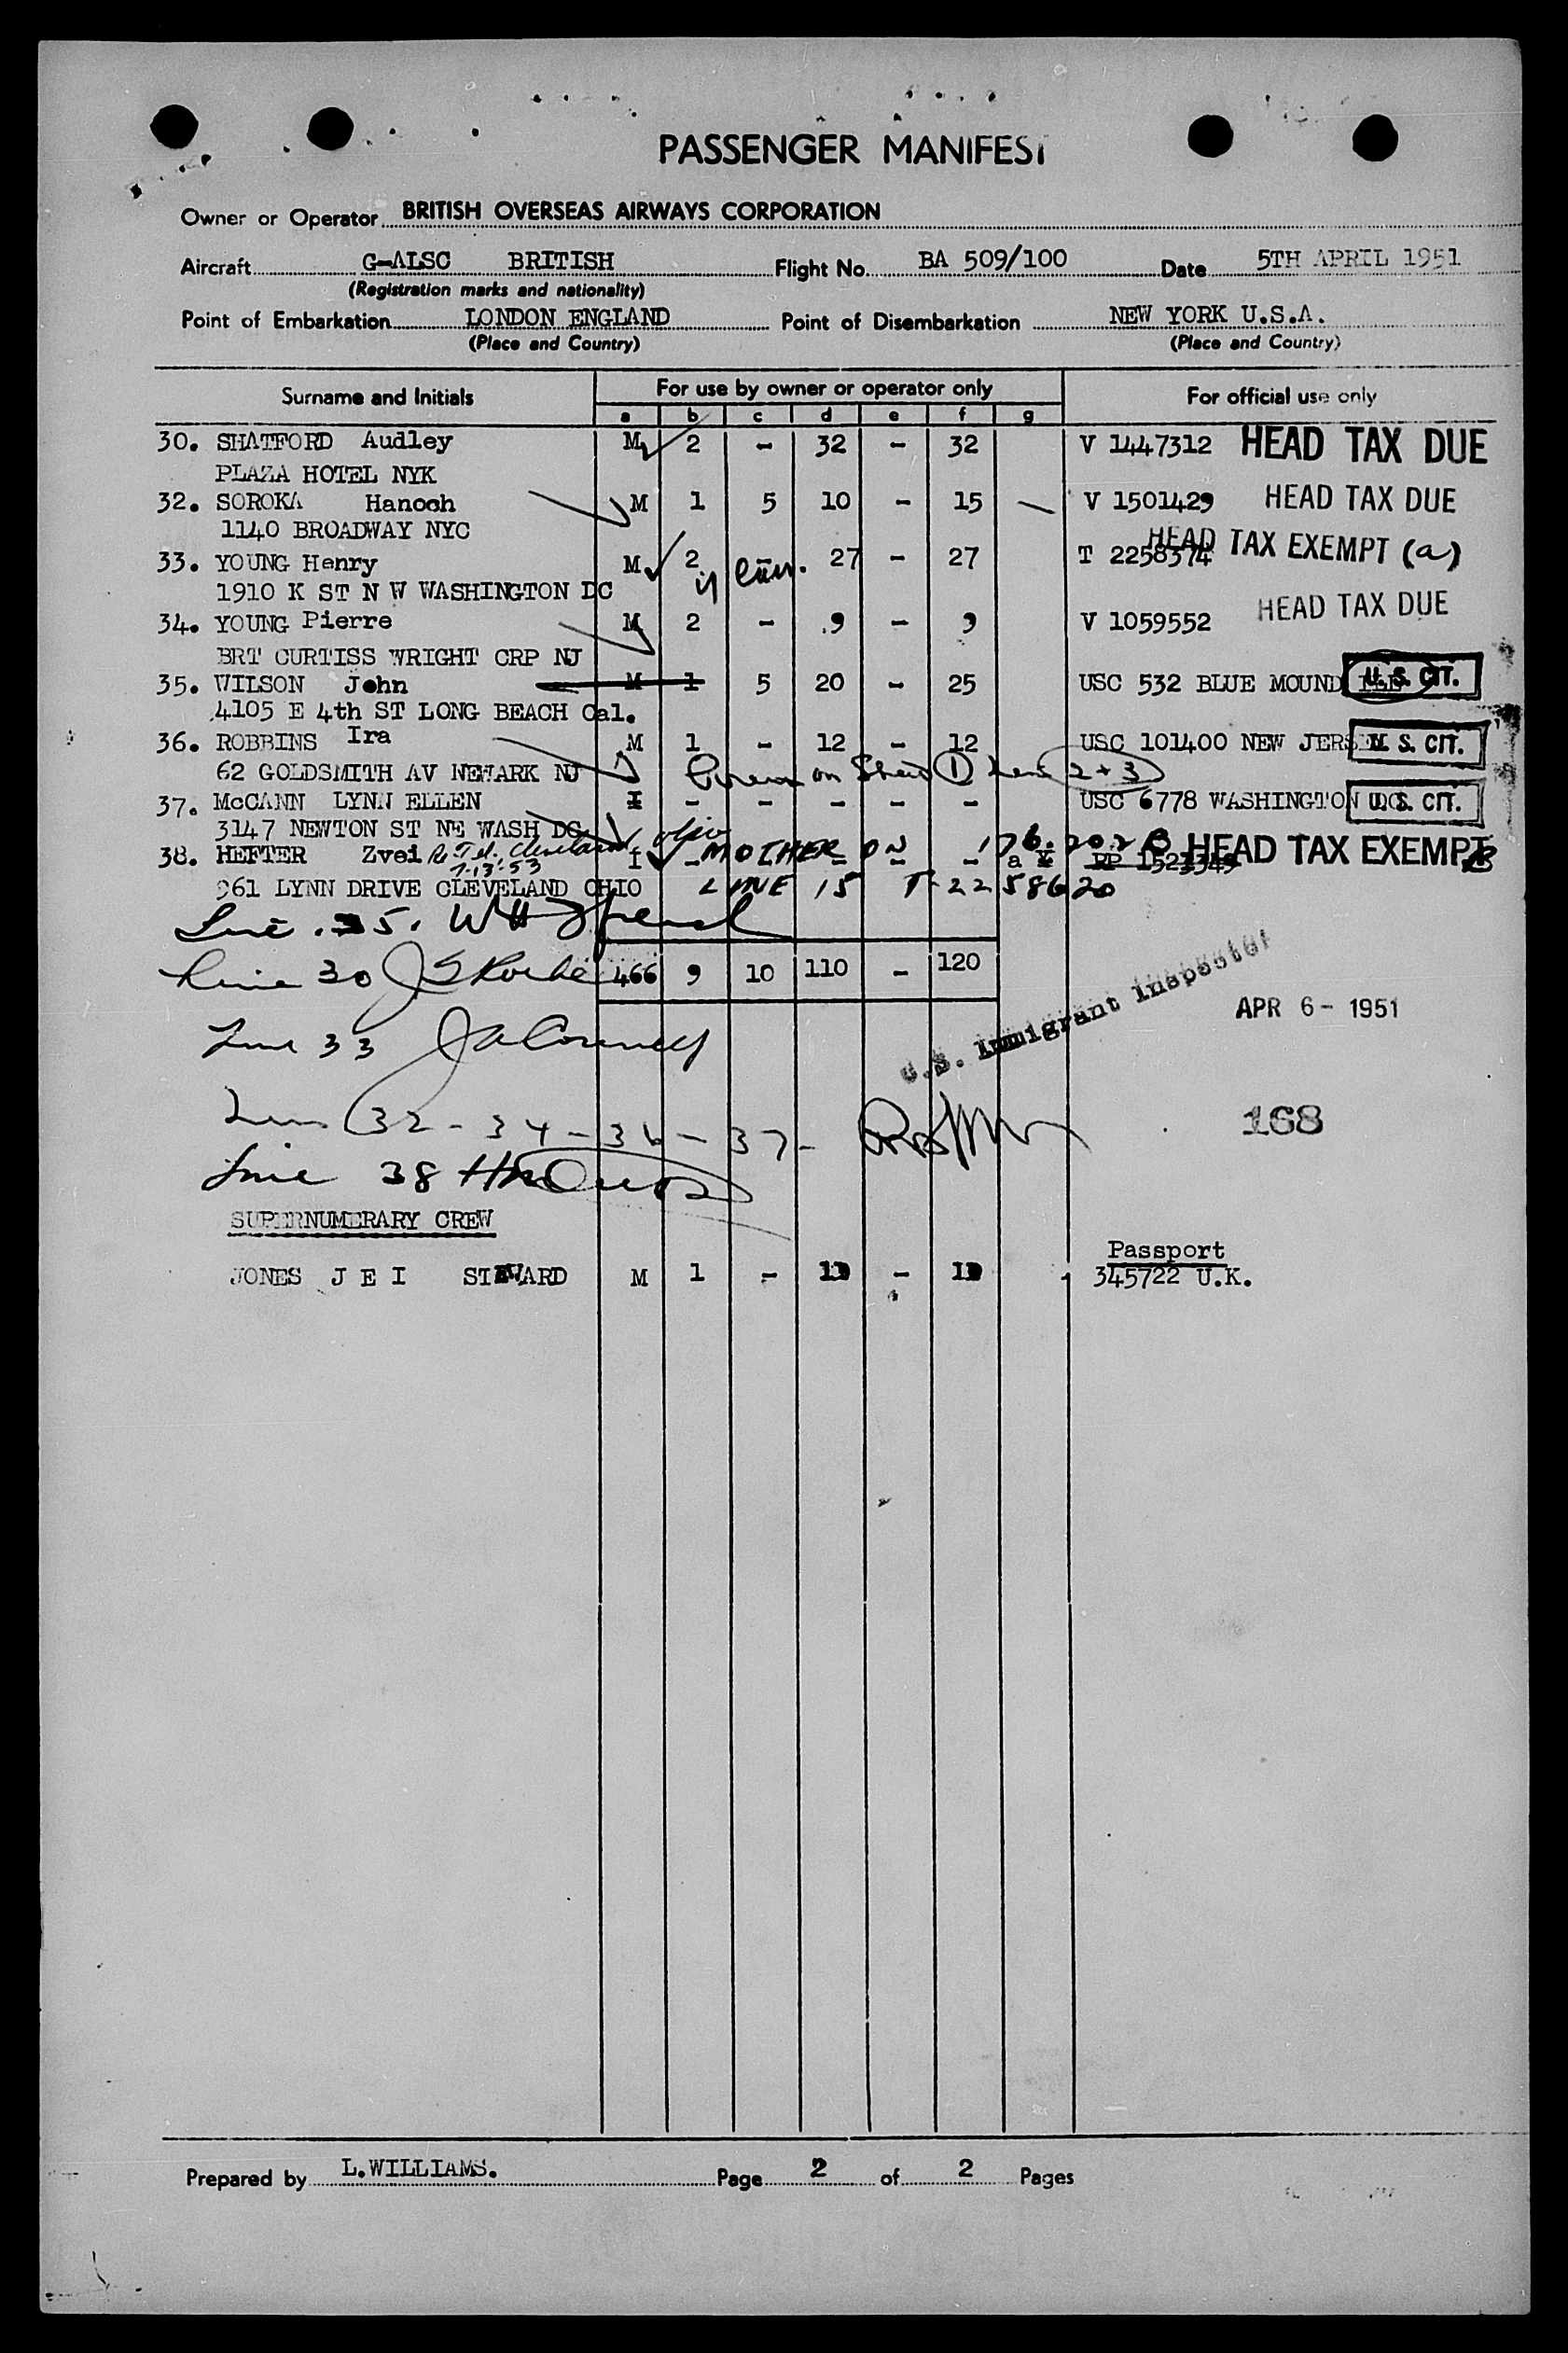 PASSENGER MANIFEST
Owner or Operator BRITISH OVERSEAS AIRWAYS CORPORATION
Aircraft G-ALSC BRITISH Flight No. BA 509/100 Date 5TH APRIL 1951
(Registration marks and nationality)
Point of Embarkation LONDON ENGLAND Point of Disembarkation NEW YORK U.S.A.
(Place and Country) (Place and Country)
Surname and Initials For use by owner or operator only For official use only
a b c d e f g
30. SHATFORD Audley M 2 - 32 - 32 V 1447312 HEAD TAX DUE
PLAZA HOTEL NYK
32. SOROKA Hanoch M 1 5 10 - 15 V 1501429 HEAD TAX DUE
1140 BROADWAY NYC
33. YOUNG Henry M 2 27 - 27 T 2258374 HEAD TAX EXEMPT (a)
1910 K ST N W WASHINGTON DC
34. YOUNG Pierre M 2 - 9 - 9 V 1059552 HEAD TAX DUE
BRT CURTISS WRIGHT CRP NJ
35. WILSON John M 1 5 20 - 25 USC 532 BLUE MOUND U. S. CIT.
4105 E 4th ST LONG BEACH Cal.
36. ROBBINS Ira M 1 - 12 - 12 USC 101400 NEW JERSEY U. S. CIT.
62 GOLDSMITH AV NEWARK NJ on Sheet 1 2 + 3
37. McCANN LYNN ELLEN I - - - - - USC 6778 WASHINGTON U. S. CIT.
3147 NEWTON ST NE WASH DC
38. HEFTER Zvei Cleveland 7-13-53 I - MOTHER ON - - - HEAD TAX EXEMPT B
961 LYNN DRIVE CLEVELAND OHIO LINE 15 T-2258620
Line 35. WH
Line 30 J
466 9 10 110 - 120
U.S. Immigrant Inspector
APR 6 - 1951
Line 33
Lines 32 - 34 - 36 - 37 -
168
Line 38
SUPERNUMERARY CREW
Passport
JONES J E I STEWARD M 1 - - 345722 U.K.
Prepared by L.WILLIAMS. Page 2 of 2 Pages